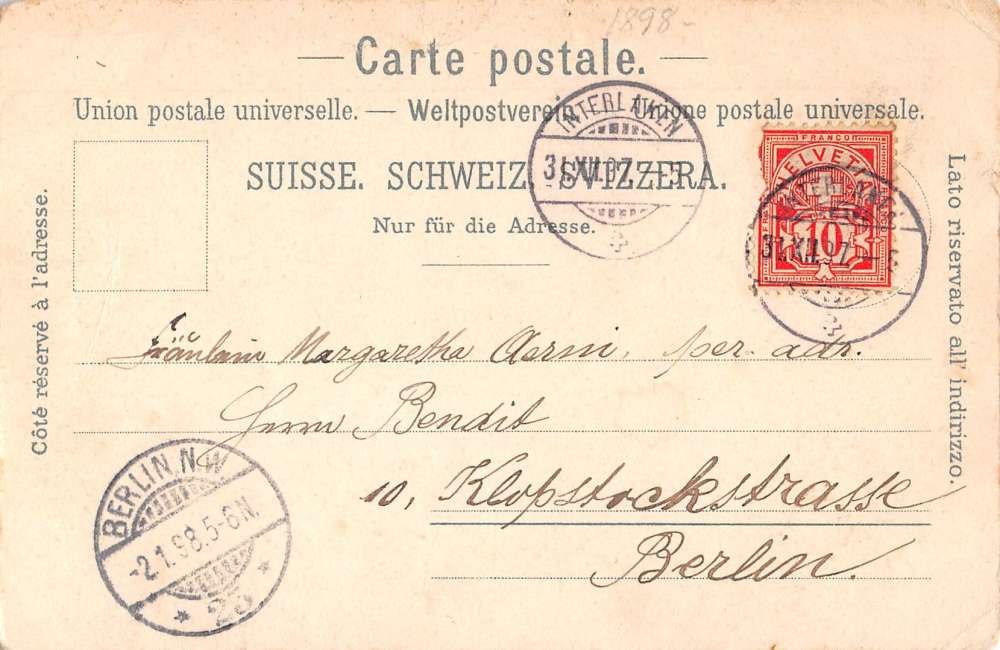 1898-
— Carte postale. —
Union postale universelle. — Weltpostverein — Unione postale universale.
SUISSE. SCHWEIZ. SVIZZERA.
Nur für die Adresse.
Côté réservé à l'adresse.
Lato riservato all' indirizzo.
INTERLAKEN
31.XII.97.
FRANCO
HELVETIA
10
INTERLAKEN
31.XII.97.
Fräulein Margaretha Aerni, per. adr.
Herrn Bendit
10, Klopstockstrasse
Berlin.
BERLIN, N.W
-2.1.98.5-6N.
* 23 *